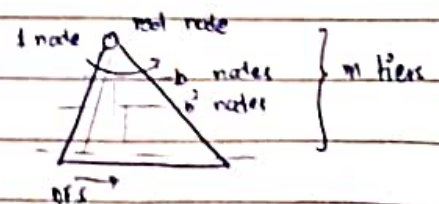 1 node root node
b nodes
b² nodes
m tiers
DFS